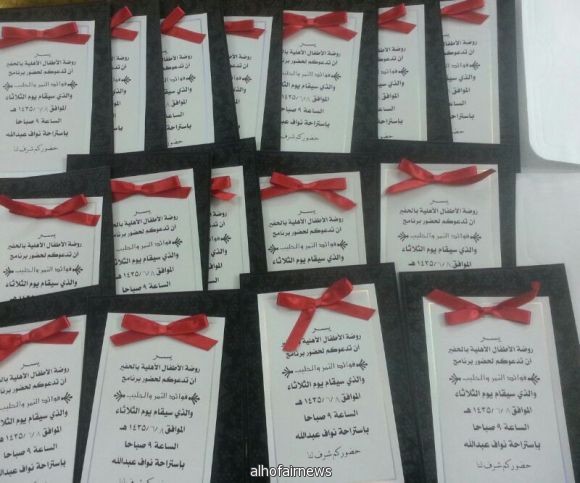 يــســر
روضة الأطفال الأهلية بالحفير
ان تدعوكم لحضور برنامج
فوائد التمر والحليب
والذي سيقام يوم الثلاثاء
الموافق ١٤٣٥/٦/٨ هـ
الساعة ٩ صباحا
بإستراحة نواف عبدالله
حضوركم شرف لنا
alhofairnews